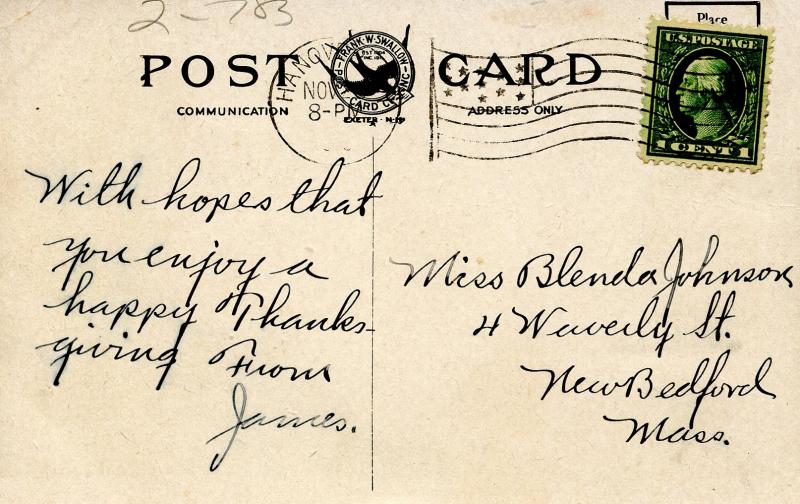 2-783
Place
U.S. POSTAGE
1 CENT 1
POST CARD
FRANK·W·SWALLOW
POST CARD CO·INC·
EXETER·N·H
NOV
8-PM
COMMUNICATION
ADDRESS ONLY
With hopes that
you enjoy a
happy Thanks-
giving From
James.
Miss Blenda Johnson
4 Waverly St.
New Bedford
Mass.